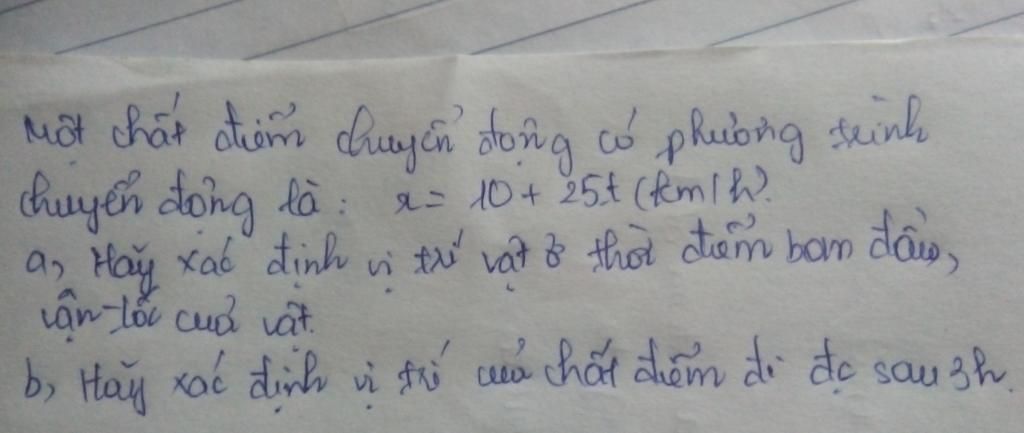 Một chất điểm chuyển động có phương trình
chuyển động là: x = 10 + 25t (km/h).
a, Hãy xác định vị trí vật ở thời điểm ban đầu,
vận tốc của vật.
b, Hãy xác định vị trí của chất điểm đi đc sau 3h.